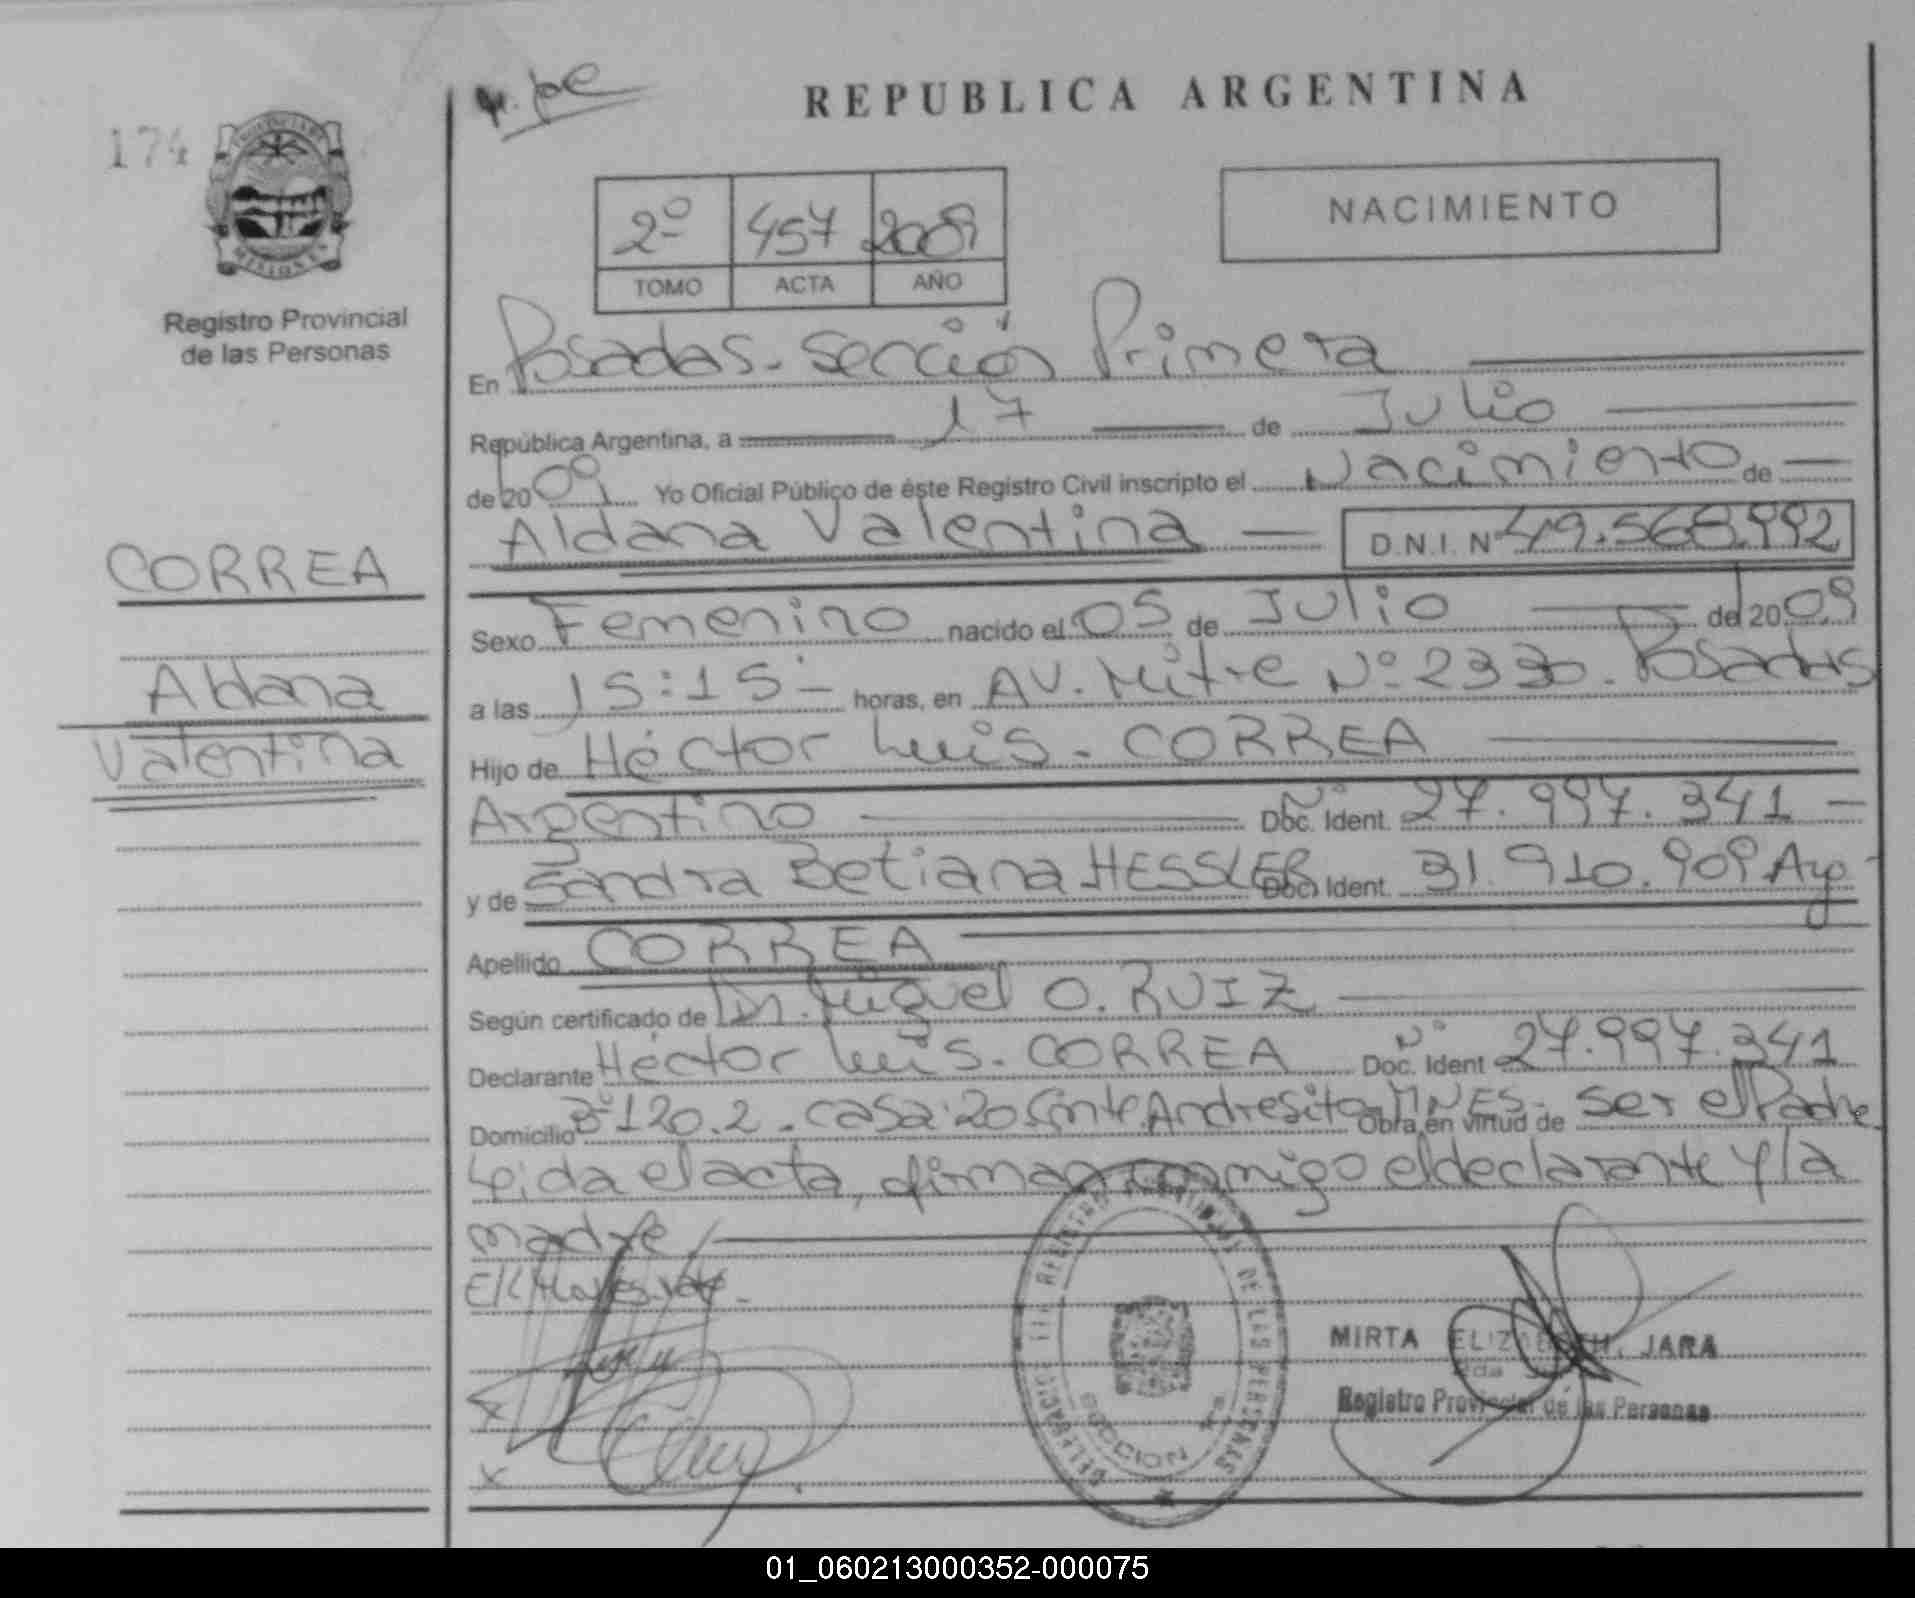 174
PROVINCIA DE
MISIONES
Registro Provincial
de las Personas
REPUBLICA ARGENTINA
2º 457 2009
TOMO ACTA AÑO
NACIMIENTO
En Posadas. Sección Primera
República Argentina, a 17 de Julio
de 2009 Yo Oficial Público de éste Registro Civil inscripto el Nacimiento de
Aldana Valentina D.N.I. Nº 49.568.992
Sexo Femenino nacido el 05 de Julio de 2009
a las 15:15 horas, en AV. Mitre Nº 2330. Posadas
Hijo de Héctor Luis. CORREA
Argentino Doc. Ident. Nº 27.997.341
y de Sandra Betiana HESSLER Doc. Ident. 31.910.909 Arg.
Apellido CORREA
Según certificado de Dr. Miguel O. RUIZ
Declarante Héctor Luis. CORREA Doc. Ident Nº 27.997.341
Domicilio Bº 120.2. casa: 20 Cmte. Andresito MNES. Obra en virtud de ser el Padre
Leida el acta, firman conmigo el declarante y la
madre
MIRTA ELIZABETH JARA
Registro Provincial de las Personas
DELEGACION REGISTRO PROVINCIAL DE LAS PERSONAS
SECCION 1ra
CORREA
Aldana
Valentina
01_060213000352-000075